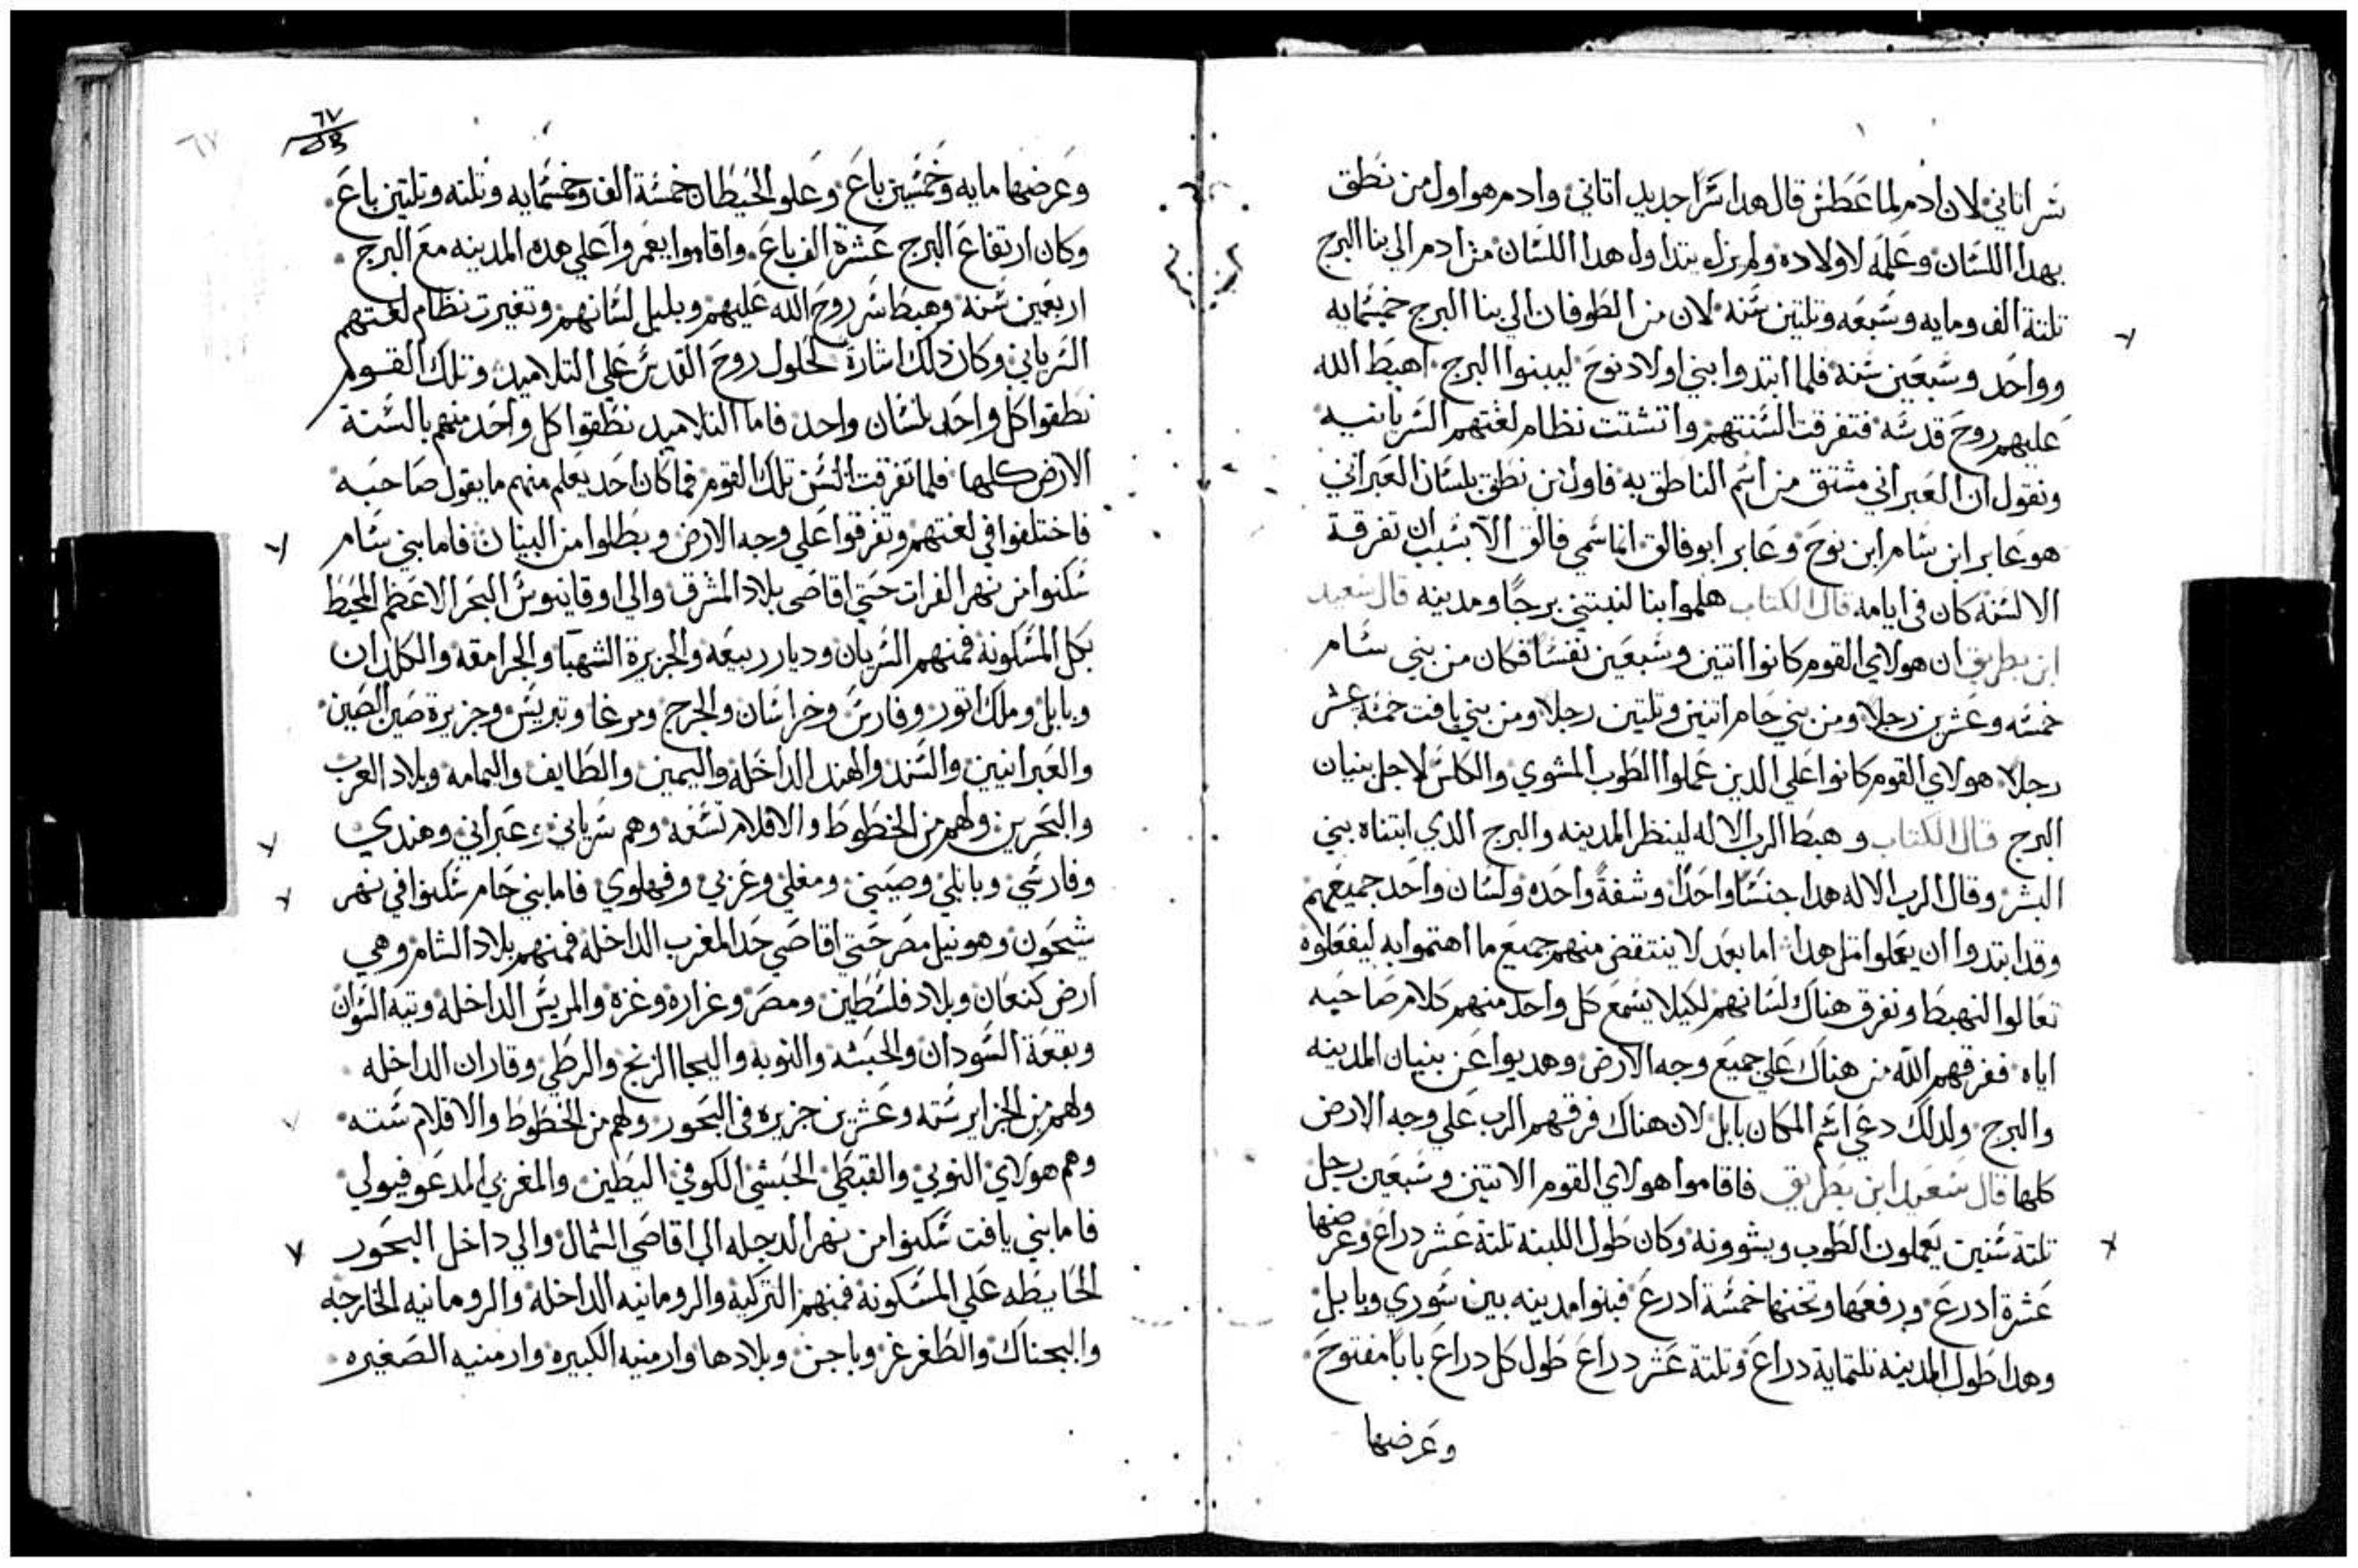 سر اتاني لان ادم لما عطس قال هدا سرا جديد اتاني وادم هو اول من نطق
بهدا اللسان وعلمه لاولاده ولم يزل يتداول هدا اللسان من ادم الي بنا البرج
تلتة الف ومايه وسبعه وتلتين سنه لان من الطوفان الي بنا البرج خمسمايه
وواحد وسبعين سنه فلما ابتدوا بني اولاد نوح ليبنوا البرج اهبط الله
عليهم روح قدسه فتفرقت السنتهم واتشتت نظام لغتهم السريانيه
ونقول ان العبراني مشتق من اسم الناطق به فاول من نطق بلسان العبراني
هو عابر ابن سام ابن نوح وعابر ابو فالق انما سمي فالق الا بسبب ان تفرقة
الالسنه كان في ايامه قال الكتاب هلموا بنا لنبتني برجا ومدينه قال سعيد
ابن بطريق ان هولاي القوم كانوا اتنين وسبعين نفسا فكان من بني سام
خمسه وعشرين رجلا ومن بني حام اتنين وتلتين رجلا ومن بني يافت خمسة عشر
رجلا هولاي القوم كانوا علي الدين عملوا الطوب المشوي والكلس لاجل بنيان
البرج قال الكتاب وهبط الرب الاله لينظر المدينه والبرج الدي ابتناه بني
البشر وقال الرب الاله هدا جنسا واحدا وشفة واحده ولسان واحد جميعهم
وقد ابتدوا ان يعملوا متل هدا اما بعد لا ينتقض منهم جميع ما اهتموا به ليفعلوه
تعالوا لنهبط ونفرق هناك لسانهم لكيلا يسمع كل واحد منهم كلام صاحبه
اياه ففرقهم الله من هناك علي جميع وجه الارض وهديوا عن بنيان المدينه
والبرج ولدلك دعي اسم المكان بابل لان هناك فرقهم الرب علي وجه الارض
كلها قال سعيد ابن بطريق فاقاموا هولاي القوم الاتنين وسبعين رجل
تلتة سنين يعملون الطوب ويشوونه وكان طول اللبنه تلتة عشر دراع وعرضها
عشرة ادرع ورفعها وتخنها خمسة ادرع فبنوا مدينه بين سوري وبابل
وهدا طول المدينه تلتماية دراع وتلتة عشر دراع طول كل دراع باباً مفتوح
وعرضها
٦٧
وعرضها مايه وخمسين باع وعلو الحيطان خمسة الف وخمسمايه وتلته وتلتين باع
وكان ارتفاع البرج عشرة الف باع واقاموا يعمروا علي هده المدينه مع البرج
اربعين سنه وهبط سر روح الله عليهم وبلبل لسانهم وتغيرت نظام لغتهم
السرياني وكان دلك اشارة لحلول روح القدس علي التلاميد وتلك القوم
نطقوا كل واحد بلسان واحد فاما التلاميد نطقوا كل واحد منهم بالسنة
الارض كلها فلما تفرقت السن تلك القوم فما كان احد يعلم منهم ما يقول صاحبه
فاختلفوا في لغتهم وتفرقوا علي وجه الارض وبطلوا من البنيان فاما بني سام
سكنوا من نهر الفرات حتي اقاصي بلاد المشرق والي اوقيانوس البحر الاعظم المحيط
بكل المسكونه فمنهم السريان وديار ربيعه والجزيرة الشهبا والجرامقه والكلدان
وبابل وملك اتور وفارس وخراسان والجرج ومرغا وتبريس وجزيرة صين الصين
والعبرانيين والسند والهند الداخله واليمين والطايف واليمامه وبلاد العرب
والبحرين ولهم من الخطوط والاقلام تسعه وهم سرياني وعبراني وهندي
وفارسي وبابلي وصيني ومغلي وعربي وفهلوي فاما بني حام سكنوا في نهر
شيحون وهو نيل مصر حتي اقاصي حد المغرب الداخله فمنهم بلاد الشام وهي
ارض كنعان وبلاد فلسطين ومصر وغزاره وغزه والمريس الداخله وتيه السوان
وبقعة السودان والحبشه والنوبه والبجا الزنج والرطي وقاران الداخله
ولهم من الجزاير سته وعشرين جزيره في البحور ولهم من الخطوط والاقلام سته
وهم هولاي النوبي والقبطي الحبشي الكوفي البطين والمغربي المدعو فيولي
فاما بني يافت سكنوا من نهر الدجله الي اقاصي الشمال والي داخل البحور
الحايطه علي المسكونه فمنهم التركيه والرومانيه الداخله والرومانيه الخارجه
والبجناك والطغرغز وباجن وبلادها وارمنيه الكبيره وارمنيه الصغيره